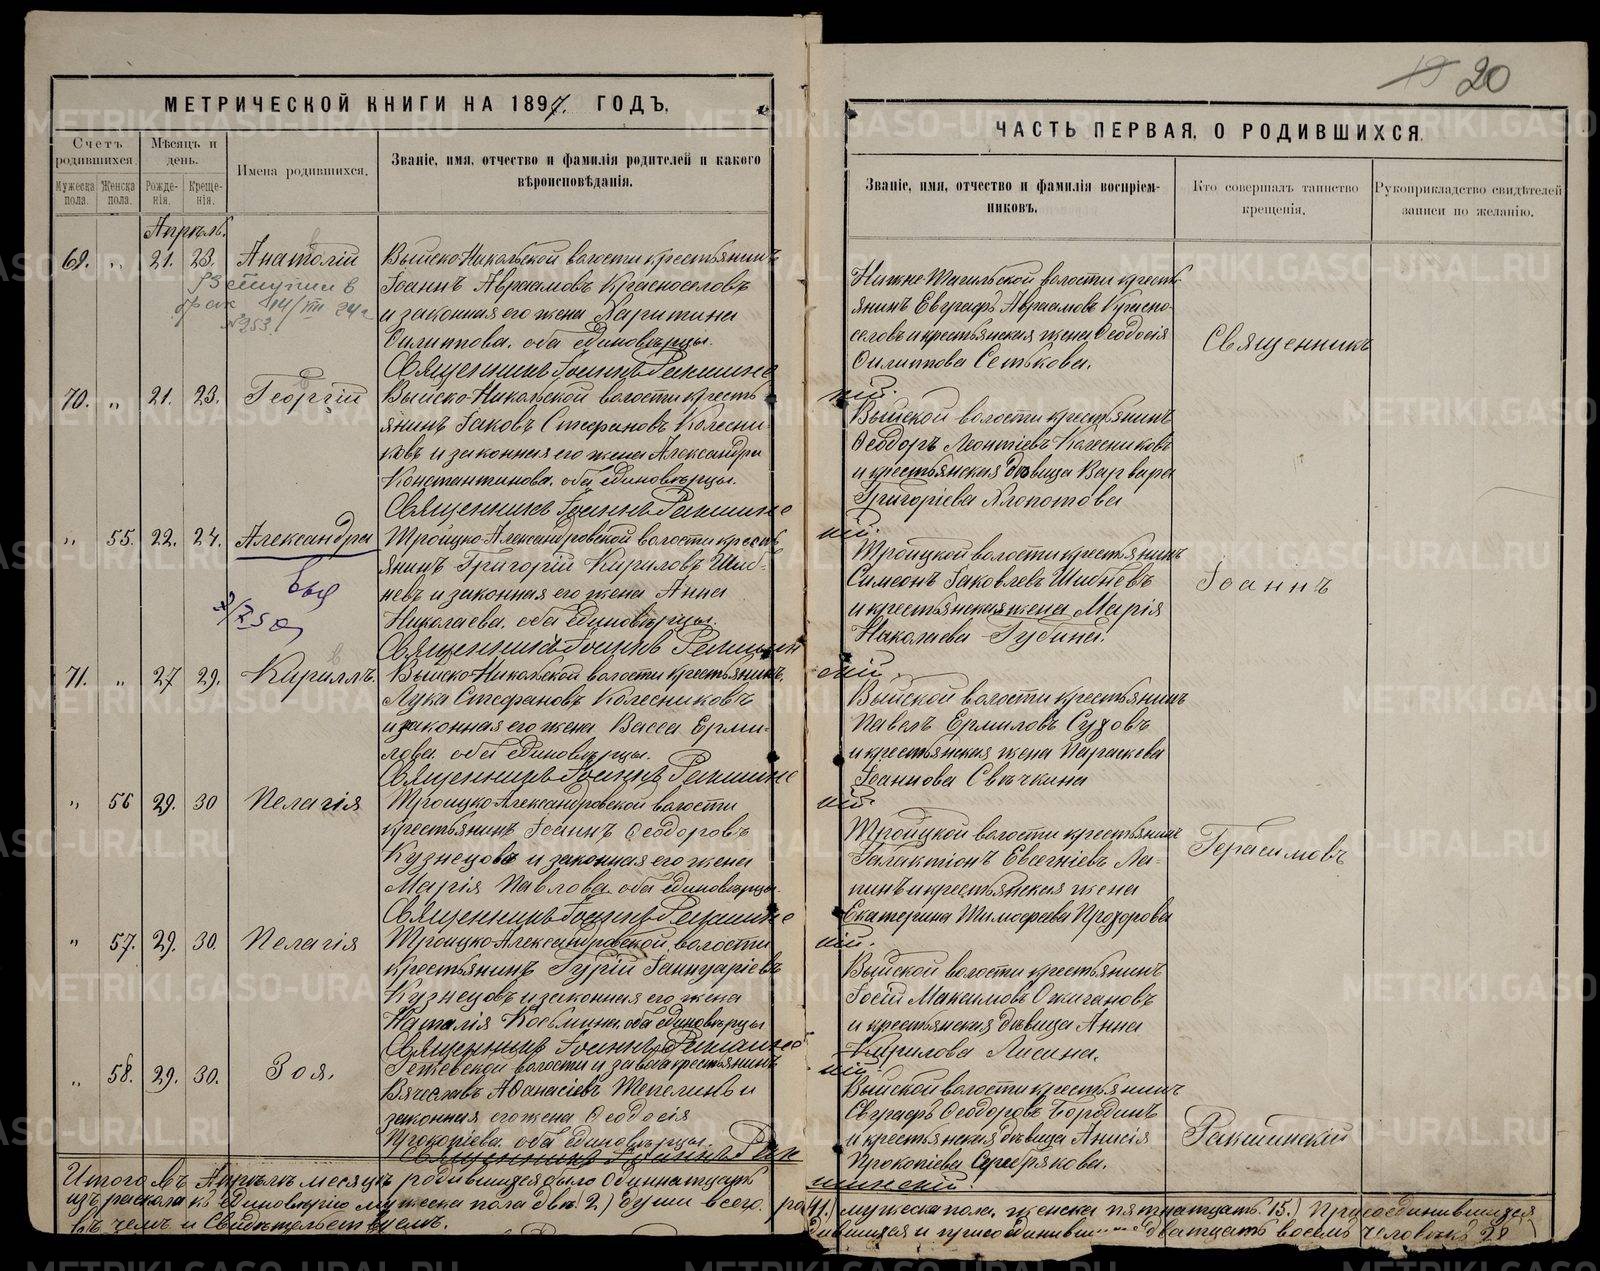 МЕТРИЧЕСКОЙ КНИГИ НА 1897. ГОДЪ.
Счетъ родившихся.
Мужеска пола.
Женска пола.
Мѣсяцъ и день.
Рожде-
нія.
Креще-
нія.
Имена родившихся.
Званіе, имя, отчество и фамилія родителей и какого
вѣроисповѣданія.
Апрѣль.
69. " 21. 23. Анатолій
Выйско-Никольской волости крестьянинъ
Іоаннъ Авраамовъ Красноселовъ
и законная его жена Харитина
Филиппова. оба единовѣрцы.
Священникъ Іоаннъ Ракшинс
Вступил в
брак 14/VII 24 г
№253.
70. " 21. 23. Георгій
Выйско-Никольской волости кресть
янинъ Іаковъ Стефановъ Колесни-
ковъ и законная его жена Александра
Константинова. оба единовѣрцы.
Священникъ Іоаннъ Ракшинс
" 55. 22. 24. Александра
Троицко-Александровской волости кресть
янинъ Григорій Кириловъ Шиб-
невъ и законная его жена Анна
Николаева. оба единовѣрцы.
Священникъ Іоаннъ Ракшин
71. " 27 29. Кириллъ.
Выйско-Никольской волости крестьянинъ
Лука Стефановъ Колесниковъ
и законная его жена Васса Ерми-
лова. оба единовѣрцы.
Священникъ Іоаннъ Ракшинс
" 56 29. 30 Пелагія
Троицко-Александровской волости
крестьянинъ Іоаннъ Ѳеодоровъ
Кузнецовъ и законная его жена
Марія Павлова. оба единовѣрцы.
Священникъ Іоаннъ Ракшинс
" 57. 29. 30. Пелагія
Троицко-Александровской волости
крестьянинъ Гурій Іаннуаріевъ
Кузнецовъ и законная его жена
Наталія Косьмина. оба единовѣрцы
Священникъ Іоаннъ Ракшинс
" 58. 29. 30. Зоя.
волости и завода крестьянинъ
Вячеславъ Аѳанасіевъ Тепелинъ и
законная его жена Ѳеодосія
Прокопіева. оба единовѣрцы.
Священникъ Іоаннъ Рак
Итого въ Апрѣлѣ месяцѣ родившихся было одиннатцать
изъ раскола къ единовѣрію мужеска пола двѣ 2) души всего. ро
въ чемъ и Свидѣтельствуемъ.
20
ЧАСТЬ ПЕРВАЯ, О РОДИВШИХСЯ.
Званіе, имя, отчество и фамилія воспріем-
никовъ.
Кто совершалъ таинство
крещенія.
Рукоприкладство свидѣтелей
записи по желанію.
Нижне Тагильской волости кресть
янинъ Евграфъ Авраамовъ Красно-
селовъ и крестьянская жена Ѳеодосія
Филиппова Сетькова.
кій.
Выйской волости крестьянинъ
Ѳеодоръ Леонтіевъ Колесниковъ
и крестьянская дѣвица Варвара
Григоріева Хлопотова
кій.
Троицкой волости крестьянинъ
Симеонъ Іаковлевъ Шибневъ
и крестьянская жена Марія
Николаева Губина.
скій.
Выйской волости крестьянинъ
Павелъ Ермиловъ Суховъ
и крестьянская жена Параскева
Іоаннова Свѣчкина
кій.
Троицкой волости крестьянинъ
Галактіонъ Евгеніевъ Ла-
пинъ и крестьянская жена
Екатерина Тимофеева Прозорова
кій.
Выйской волости крестьянинъ
Іосій Максимовъ Ожигановъ
и крестьянская дѣвица Анна
Кирилова Лисина.
кій.
Выйской волости крестьянинъ
Евграфъ Ѳеодоровъ Бородинъ
и крестьянская дѣвица Анисія
Прокопіева Серебрякова.
шинскій.
Священникъ
Іоаннъ
Герасимовъ
Ракшинскій
11.) мужеска пола, женска пятнатцать. 15.) Присоединившихся
дившихся и присоединившихся дватцать восемь человѣкъ 28
METRIKI.GASO-URAL.RU